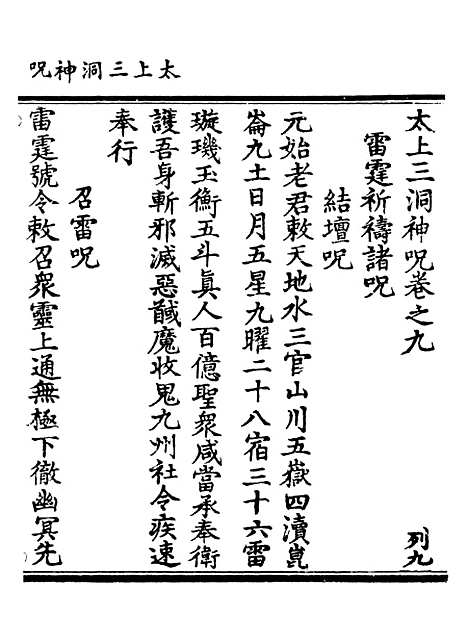 太上三洞神呪
太上三洞神呪卷之九 列九
雷霆祈禱諸呪
結壇呪
元始老君敕天地水三官山川五嶽四瀆崑
崙九土日月五星九曜二十八宿三十六雷
璇璣玉衡五斗眞人百億聖衆咸當承奉衛
護吾身斬邪滅惡馘魔收鬼九州社令疾速
奉行
召雷呪
雷霆號令敕召衆靈上通無極下徹幽冥先